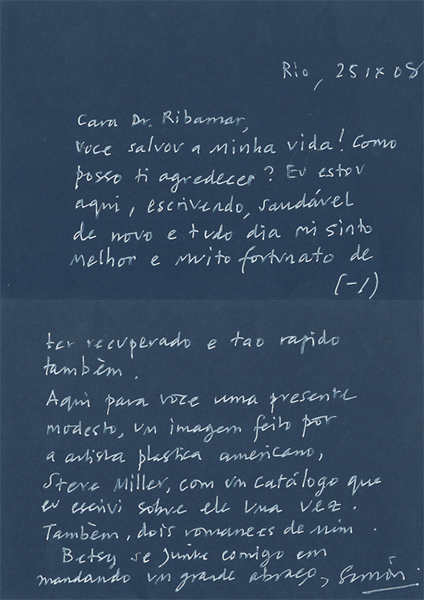 Rio, 25 IX 08
Cara Dr. Ribamar,
voce salvou a minha vida! Como
posso ti agredecer? Eu estou
aqui, escrivendo, saudável
de novo e tudo dia mi sinto
melhor e muito fortunato de
(-1)
ter recuperado e tao rapido
também.
Aqui para voce uma presente
modesto, un imagem feito por
a artista plastica americano,
Steve Miller, com un catálogo que
eu escrivi sobre ele una vez.
Também, dois romances de mim.
Betsy se junta comigo em
mandando un grande abraço, Simón